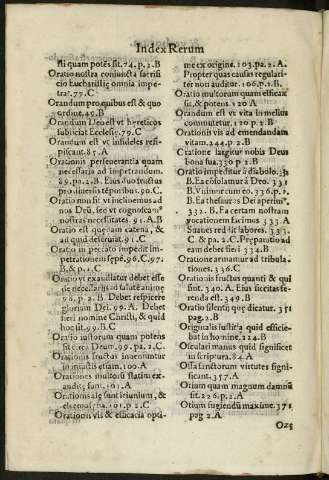 Index Rerum
sti quam potēs sit. 74. p. 2. B
Oratio nostra coniuncta sacrifi
cio Eucharistiæ omnia impe-
trat. 77. C
Orandum pro quibus est & quo
ordine. 49. B
Orandum Deo est vt hæreticos
subiiciat Ecclesiæ. 79. C
Orandum est vt infideles resi-
piscant. 85. A
Orationis perseuerantia quam
necessaria ad impetrandum.
89. pa. 2. B. Eius duo fructus
pro diuersis tēporibus. 90. C
Oratio non fit vt inclinemus ad
nos Deū, sed vt cognoscam9
nostras necessitates. 91. A. B
Oratio est quædam catena, &
ad quid deseruiat. 91. C
Oratio in peccato impedit im-
petrationem sæpè. 96. C. 97.
B. & p. 1. C
Oratio vt exaudiatur debet esse
de necessariis ad salutē animę
96. p. 2. B Debet respicere
gloriam Dei. 99. A. Debet
fieri nomine Christi, & quid
hoc sit. 99. B. C
Oratio iustorum quam potens
sit circa Deum. 99. pa. 2. C.
Orationis fructus inueniuntur
in iniustis etiam. 100. A
Orationes multorū statim ex-
auditę sunt. 101. A
Orationis alę sunt ieiunium, &
eleemosyna. 101. p. 2. C
Orationis vis & efficacia opti-
me ex origine. 103. pa. 2. A.
Propter quas causas regulari-
ter non auditur. 106. p. 1. B.
Oratio multorum quam efficax
sit, & potens. 120 A
Orandum est vt vita in melius
commutetur. 120 p. 2 B
Orationis vis ad emendandam
vitam. 244. p. 2 B
Oratione largitur nobis Deus
bona sua. 330 p. 2 B
Oratio impeditur à diabolo. 331
B. Ea cōsolamur à Deo. 331
B. Vidimur cum eo. 336. p. 2.
B. Ea thesauros Dei aperim9.
332. B. Ea certam nostram
vocationem facimus 333 A
Suaues reddit labores. 333.
C. & pa. 2. C. Præparatio ad
eam debet fieri. 334. B
Oratione armamur ad tribula
tiones. 336. C
Orationis fructus quanti & qui
sint. 340. A. Eius siccitas fe-
renda est. 349. B
Oratio silenti quę dicatur. 351
pag. 2. B
Originalis iustitia quid efficie-
bat in homine, 224. B
Osculari manus quid significet
in scriptura. 84. A
Ossa sanctorum virtutes signi-
ficant. 357. A
Otium quam magnum damnū
sit. 226. p. 2. A
Otium fugiendū maxime. 371
pag 2. A
Oz3